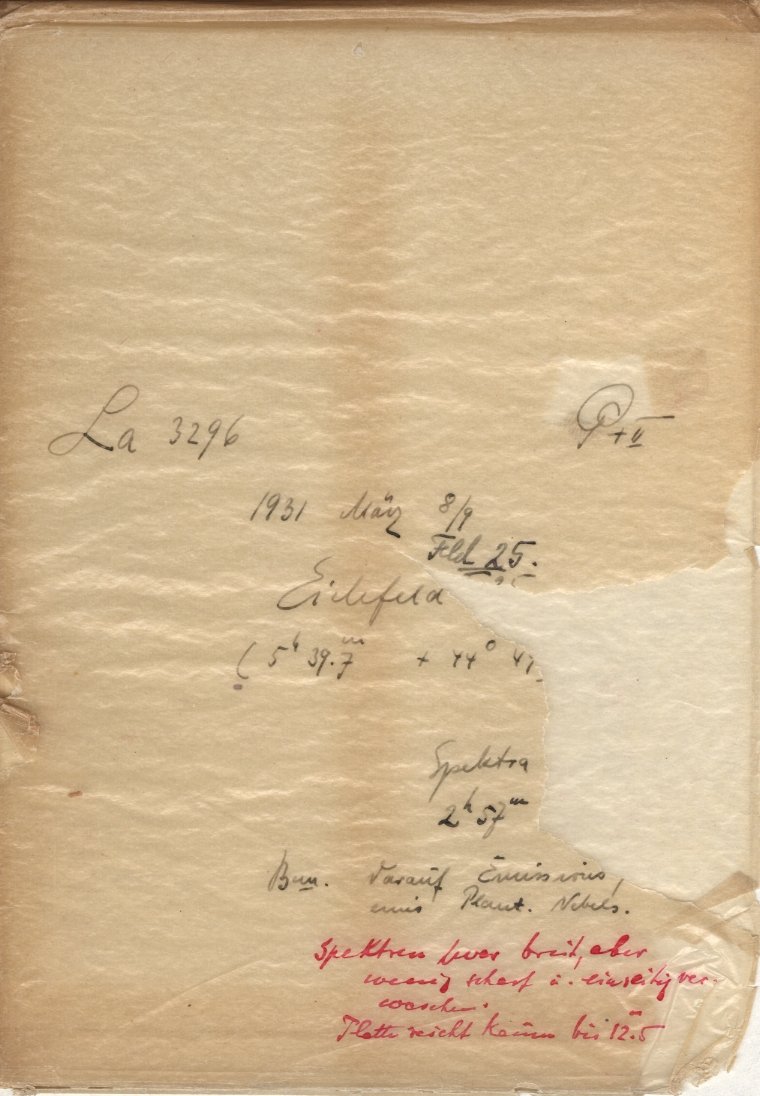 La 3296
P + II
1931 März 8/9
Feld 25.
Eichfeld
( 5h 39.m7 + 44° 41
Spektra
2h 57m
Bem. Darauf Emissions,
eines Planet. Nebels.
Spektren zwar breit, aber
wenig scharf u. einseitig ver-
waschen.
Platte reicht kaum bis 12.m5